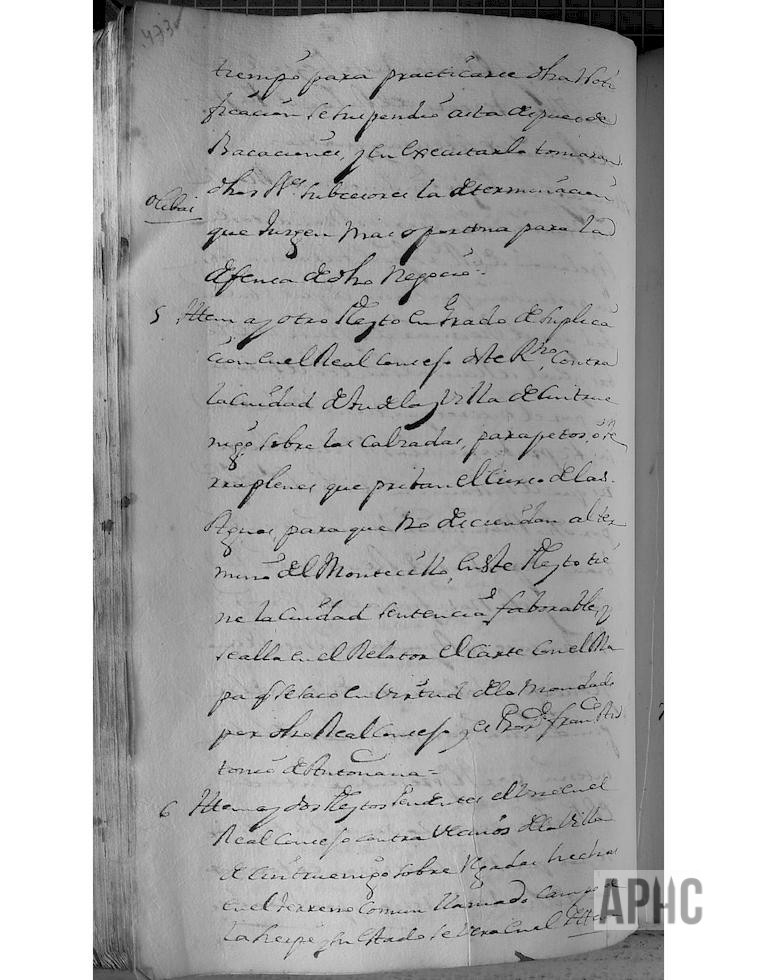 473
tiempo para practicarce dha Noti
ficacion se suspendió asta despues de
Bacaciones, y en executarlo tomaran
dhos SSes Subcesores la determinacion
que Iuzgen mas oportuna para la
defensa de dho Negocio.
5 Ittem ay otro Pleyto en Grado de Suplica
cion en el Real Consejo deste Rno, Contra
la Ciudad de Tudela y Villa de Cintrue
nigo sobre las Calzadas, parapetos, ó te
rraplenes que priban el Curso de las
Aguas, para que no desciendan al ter
mino del Montecillo, en este Pleyto tie
ne la Ciudad Sentencia faborable, y
se alla en el Relator el Carte con el Ma
pa q se saco en virtud de lo mandado
por dho Real Consejo y es Fran.co An
tonio de
6 Ittem ay dos Pleytos Pendientes el uno en el
Real Consejo contra Vecinos de la Villa
de Cintruenigo sobre hechas
en el terreno Comun llamado Campo de
la y su estado se vera en el
APHC